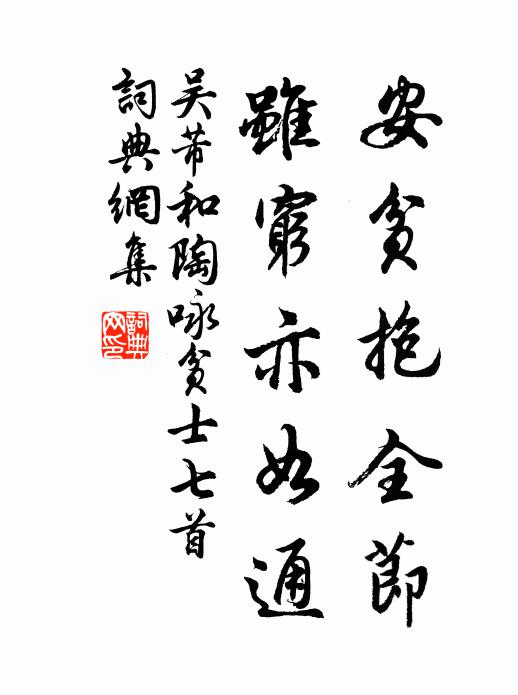 安貧抱全節
雖窮亦如通
吴芾和陶咏貧士七首
詞典網集
詞典網印